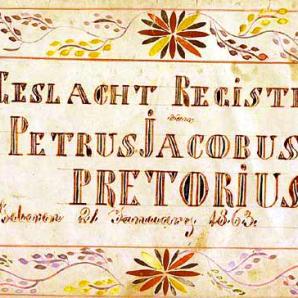 Geslacht Registe
van
Petrus Jacobus
Pretorius
Geboren 21 January 1863.